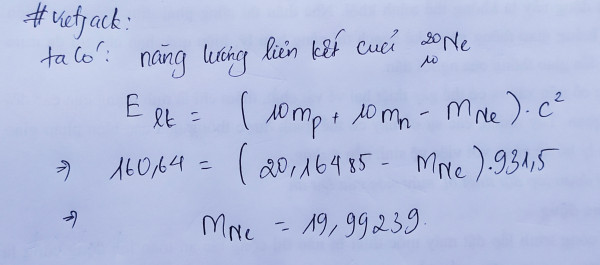 #vietjack:
ta có: năng lượng liên kết của ²⁰₁₀Ne
E lk = (10mp + 10mn - mNe).c²
⇒ 160,64 = (20,16485 - mNe).931,5
⇒ mNe = 19,99239.